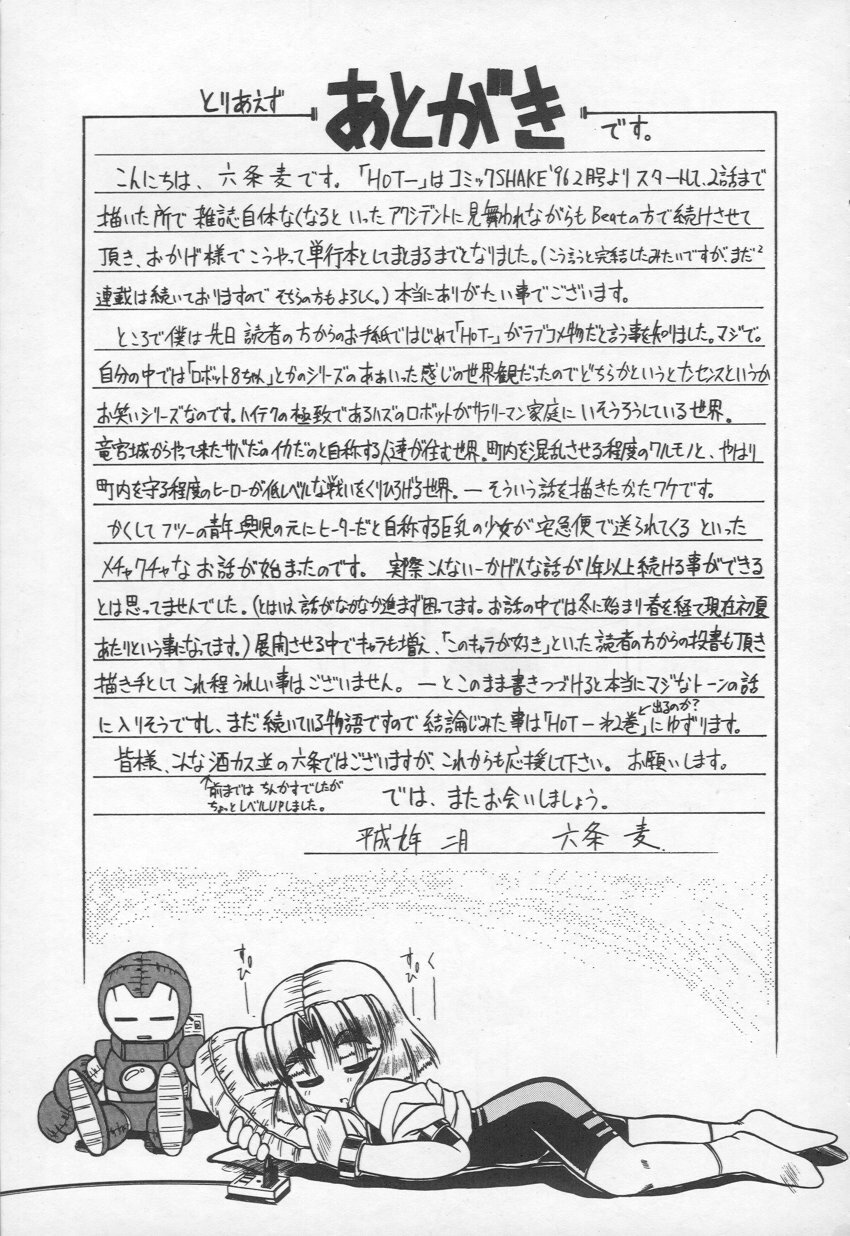 とりあえず
あとがき
です。
こんにちは、六条麦です。「HOT―」はコミックSHAKE'96 2月号よりスタートして、2話まで
描いた所で雑誌自体なくなるといったアクシデントに見舞われながらもBeatの方で続けさせて
頂き、おかげ様でこうやって単行本としてまとまるまでとなりました。(こう言うと完結したみたいですがまだ2
連載は続いておりますのでそちらの方もよろしく。)本当にありがたい事でございます。
ところで僕は先日読者の方からのお手紙ではじめて「HOT―」がラブコメ物だと言う事を知りました。マジで。
自分の中では「ロボット8ちゃん」とかのシリーズのああいった感じの世界観だったのでどちらかというとナンセンスというか
お笑いシリーズなのです。ハイテクの極致であるハズのロボットがサラリーマン家庭にいそうろうしている世界。
竜宮城からやって来たサバだのイカだのと自称する人達が住む世界。町内を混乱させる程度のワルモノと、やはり
町内を守る程度のヒーローが低レベルな戦いをくりひろげる世界。―そういう話を描きたかったワケです。
かくしてフツーの青年興児の元にヒーターだと自称する巨乳の少女が宅急便で送られてくるといった
メチャクチャなお話が始まったのです。実際こんないーかげんな話が1年以上続ける事ができる
とは思ってませんでした。(とはいえ話がなかなか進まず困ってます。お話の中では冬に始まり春を経て現在初夏
あたりという事になってます。)展開させる中でキャラも増え、「このキャラが好き」といった読者の方からの投書も頂き
描き手としてこれ程うれしい事はございません。―とこのまま書きつづけると本当にマジなトーンの話
に入りそうですし、まだ続いている物語ですので結論じみた事は「HOT―第2巻」にゆずります。
と出るのか?
皆様、こんな酒カス並の六条ではございますが、これからも応援して下さい。お願いします。
↑前まではちんかすでしたが
ちょっとレベルUPしました。
では、またお会いしましょう。
平成九年 二月 六条 麦
すぴー
すぴー
く